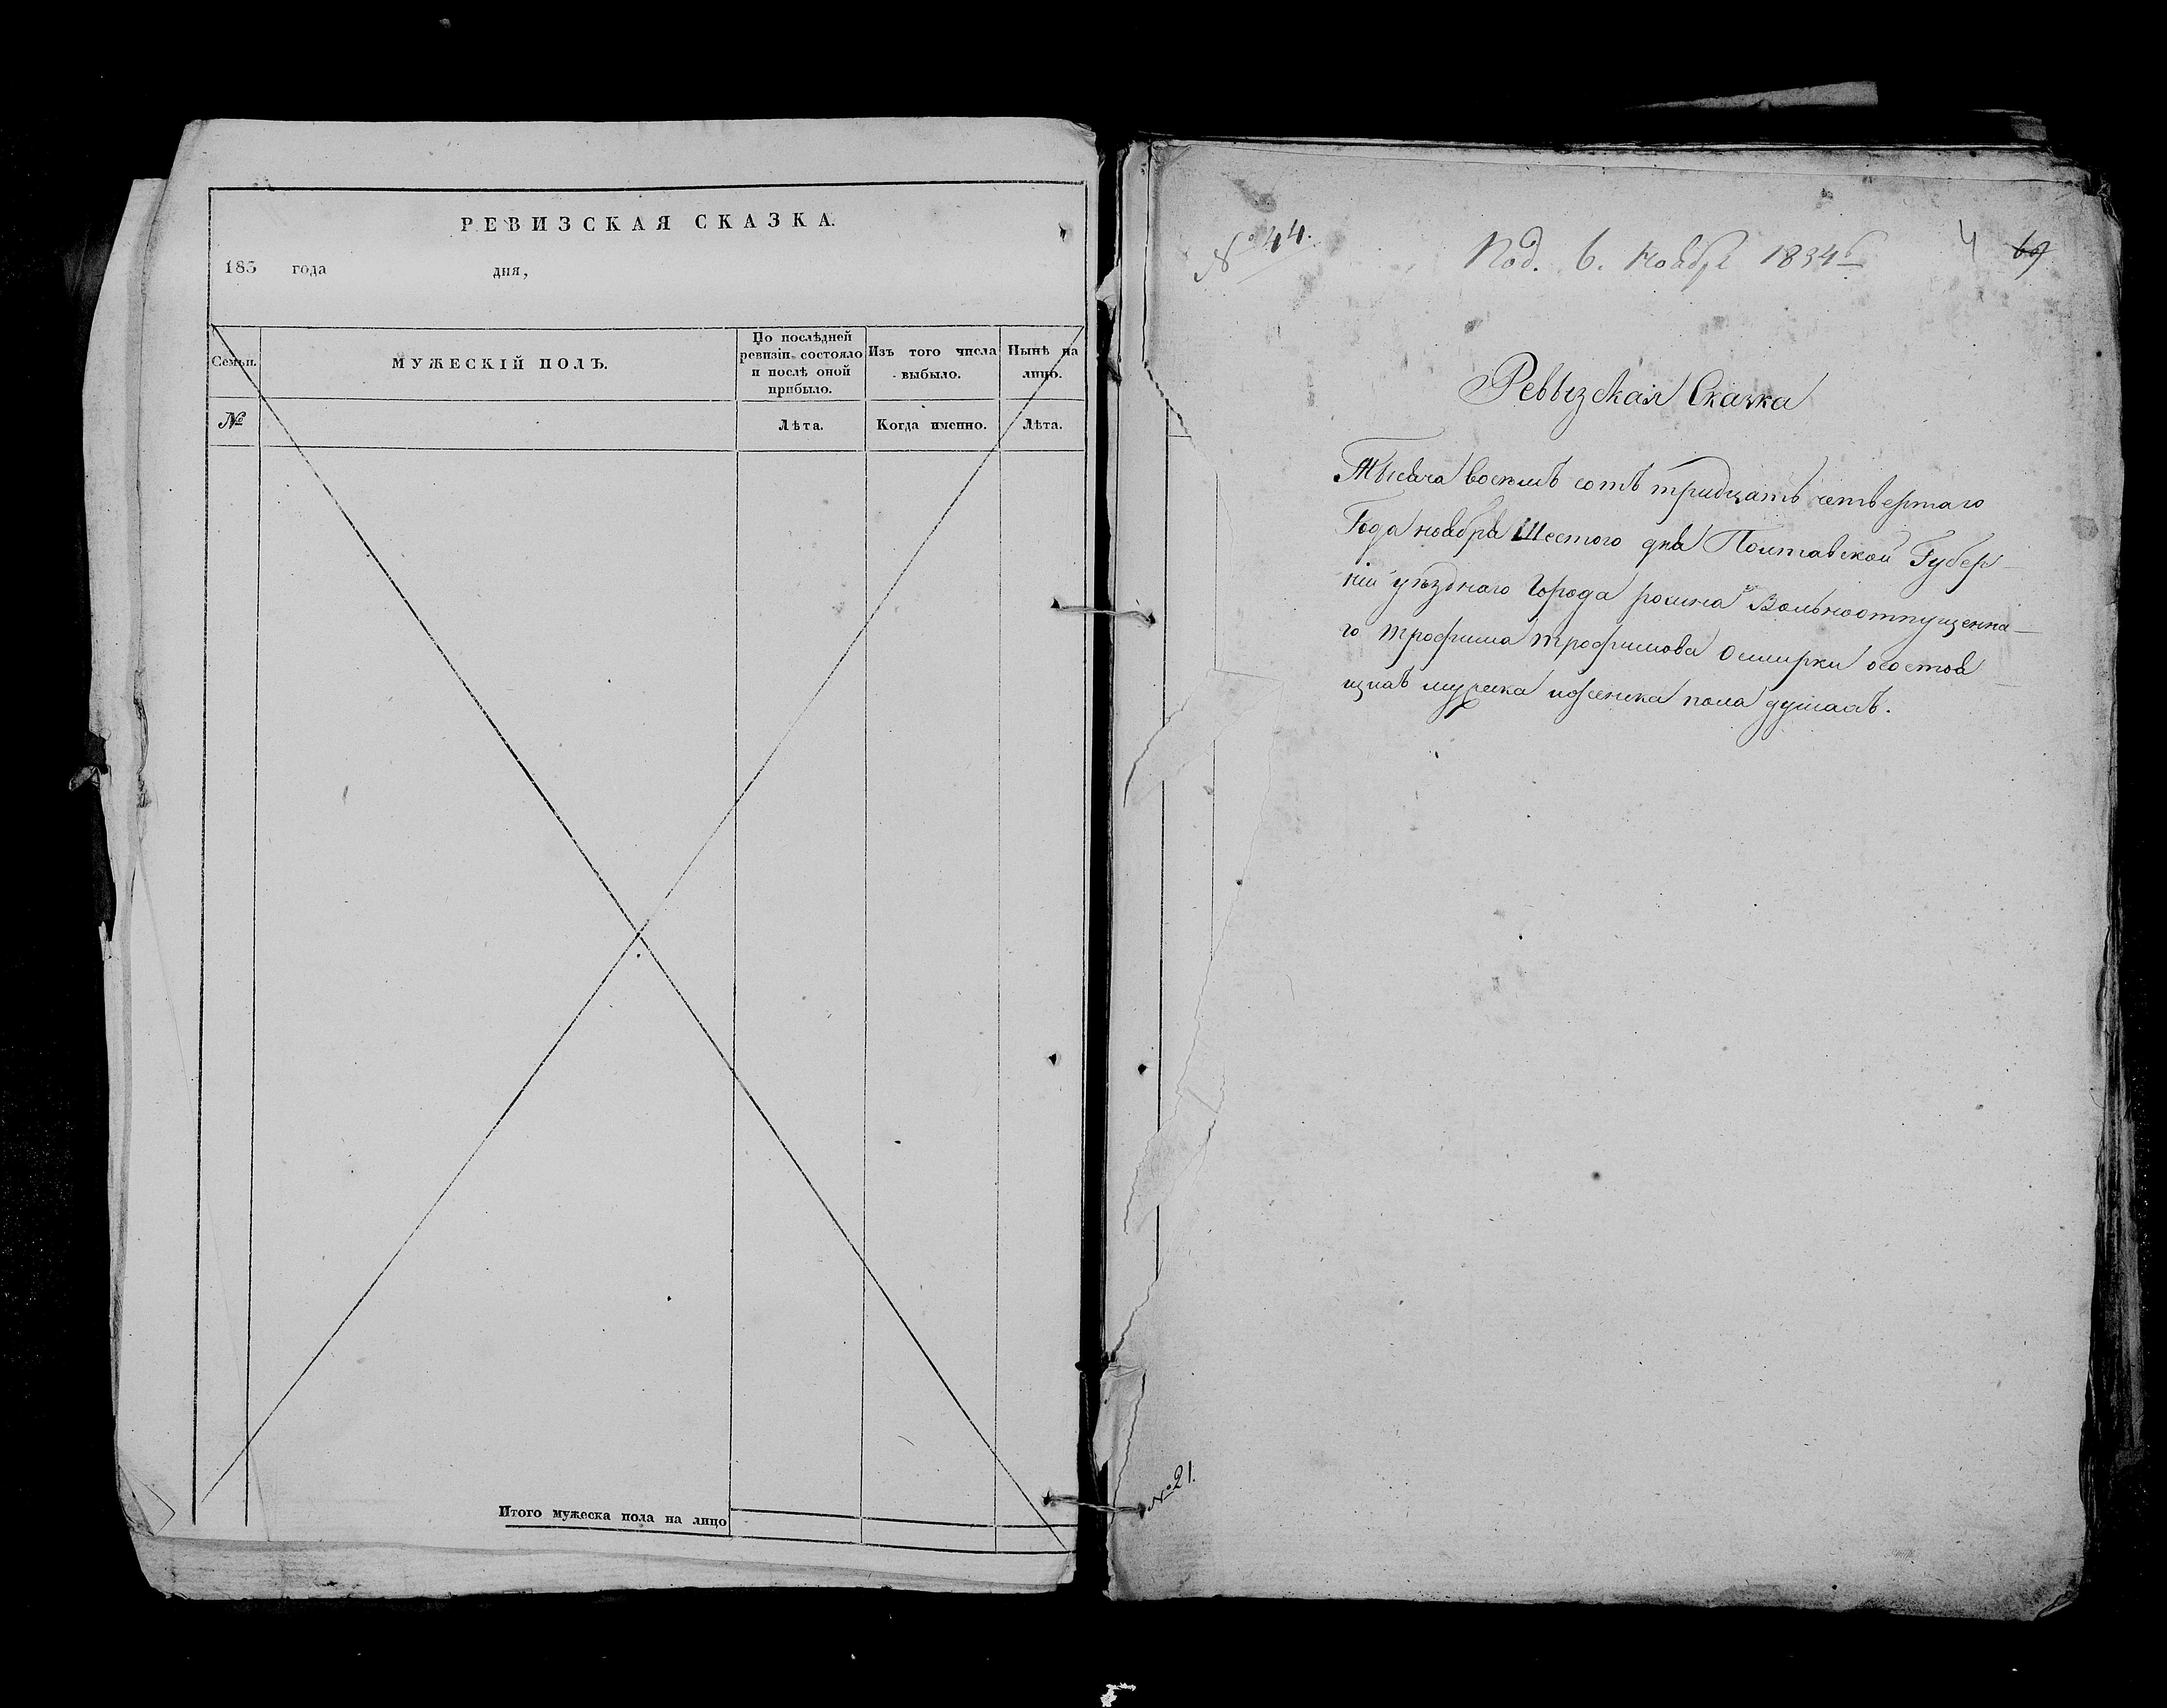 РЕВИЗСКАЯ СКАЗКА.
185 года дня,
Семьи.
МУЖЕСКІЙ ПОЛЪ.
По послѣдней
ревизіи состояло
и послѣ оной
прибыло.
Изъ того числа
выбыло.
Нынѣ на
лицо.
№
Лѣта.
Когда именно.
Лѣта.
Итого мужеска пола на лицо
№ 44.
Под. 6. Ноября 1834
4 69
Ревызская Сказка
Тысяча восемъ сотъ тридцать четвертаго
Года ноября Шестого дня Полтавской Губер
ніи уѣзднаго Города ромна Вольноотпущенна
го трофима трофимова
щихъ мужеска иженска пола душахъ.
№ 21.